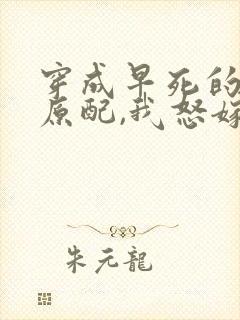 穿成早死的
原配,我怒嫁
朱元龍